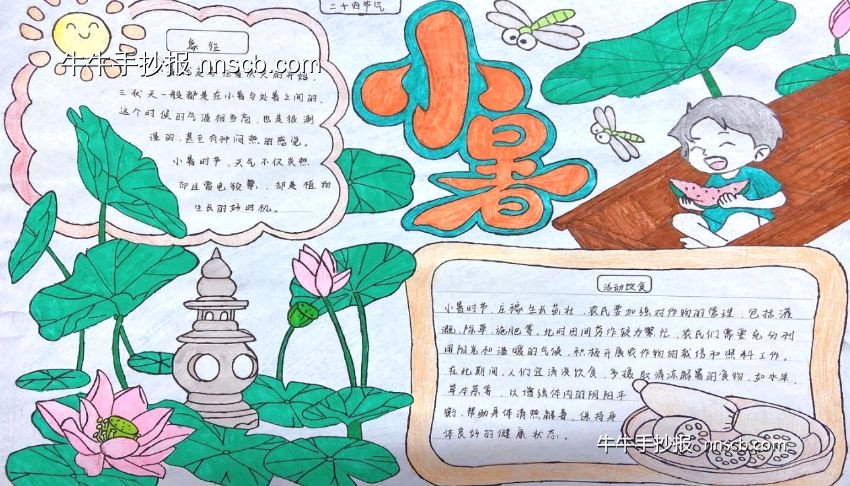 二十四节气
象征
牛牛手抄报 nnscb.com
伏天的开始,
三伏天一般都是在小暑与处暑之间的,
这个时候的气温相当高,也是很潮
湿的,甚至有种闷热的感觉。
小暑时节,天气不仅炎热
而且雷电频繁,却是植物
生长的好时机。
小暑
活动饮食
小暑时节,庄稼生长茁壮,农民要加强对作物的管理,包括灌
溉、除草、施肥等,此时田间劳作较为繁忙,农民们需要充分利
用阳光和温暖的气候,积极开展农作物的栽培和照料工作。
在此期间,人们宜清淡饮食,多摄取清凉解暑的食物,如水果、
草本茶等,以增强体内的阴阳平
衡,帮助身体清热解毒,保持身
体良好的健康状态。
牛牛手抄报 nnscb.com